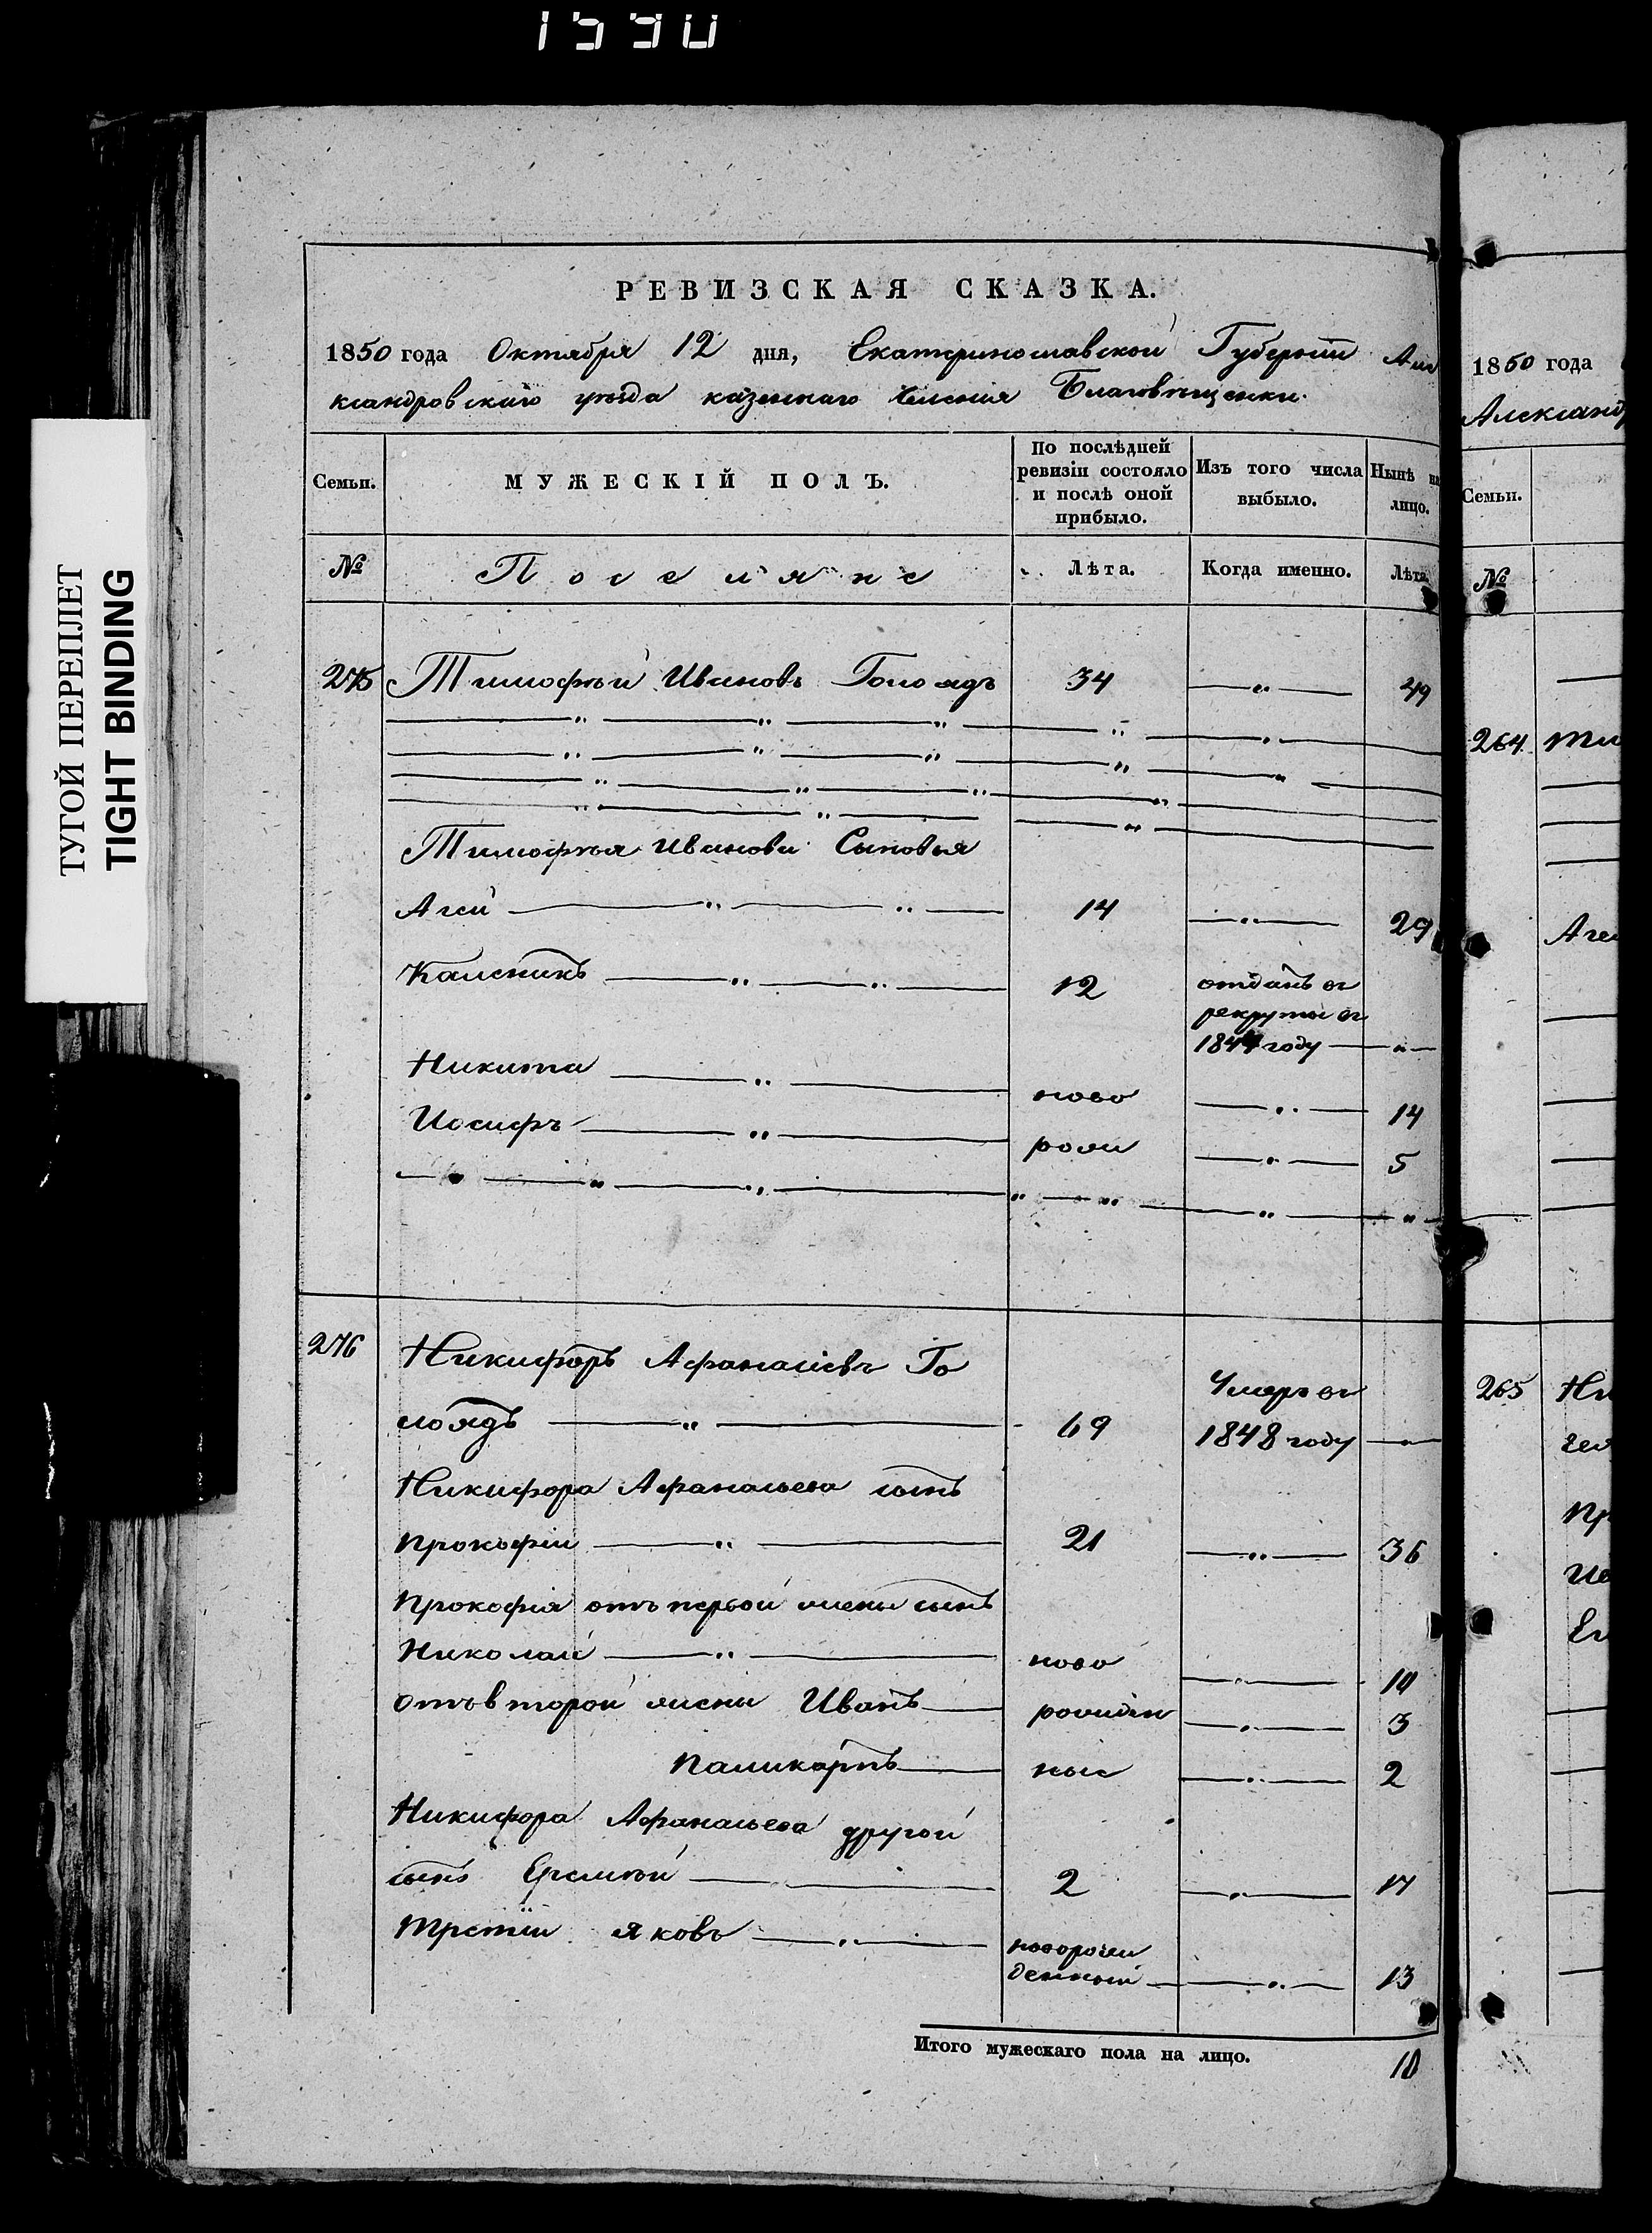 1590
ТУГОЙ ПЕРЕПЛЕТ
TIGHT BINDING
РЕВИЗСКАЯ СКАЗКА.
1850 года Октября 12 дня, Екатеринославской Губернии Але
ксандровскаго уѣзда казеннаго селенія Благовѣщенки.
Семьи. МУЖЕСКІЙ ПОЛЪ. По послѣдней ревизіи состояло и послѣ оной прибыло. Изъ того числа выбыло. Нынѣ на лицо.
№ Поселяне Лѣта. Когда именно. Лѣта.
275 Тимофѣй Ивановъ Голоядъ 34 — " — 49
Тимофѣя Иванова Сыновья
Агей — " — " — 14 — " — 29
Каленикъ — " — " — 12 отданъ въ
рекруты въ
1844 году — " —
Никита — " — ново — " — 14
Іосифъ — " — рожи — " — 5
276 Никифоръ Афанасіевъ Го
лоядъ — " — 69 Умеръ въ
1848 году —
Никифора Афанасьева сынъ
Прокофій — " — 21 — " — 36
Прокофія отъ первой жены сынъ
Николай — " — ново — " — 14
отъ второй жены Иванъ — рожиден — " — 3
Паликарпъ — ные — " — 2
Никифора Афанасьева другой
сынъ Еремѣй — 2 — " — 17
Третій Яковъ — " — новорожи
денный — " — 13
Итого мужескаго пола на лицо. 10
1850 года
Александ
Семьи.
№
264
Аге
265 Ни
Пр